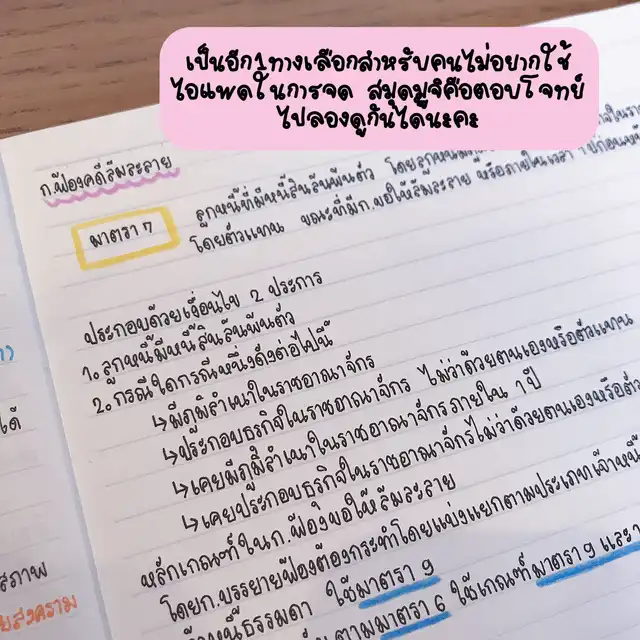 เป็นอีก1ทางเลือกสำหรับคนไม่อยากใช้
ไอแพดในการจด สมุดมูจิคือตอบโจทย์
ไปลองดูกันได้นะคะ
ก.ฟ้องคดีล้มละลาย
มาตรา 7
ลูกหนี้ที่มีหนี้สินล้นพ้นตัว
โดยตัวแทน ขณะที่มีก.ขอให้ล้มละลาย หรือภายในเวลา 1 ปีก่อน
ประกอบด้วยเงื่อนไข 2 ประการ
1. ลูกหนี้มีหนี้สินล้นพ้นตัว
2. กรณีใดกรณีหนึ่งดังต่อไปนี้
↳ มีภูมิลำเนาในราชอาณาจักร
↳ ประกอบธุรกิจในราชอาณาจักร ไม่ว่าด้วยตนเองหรือตัวแทน
↳ เคยมีภูมิลำเนาในราชอาณาจักรภายใน 1 ปี
↳ เคยประกอบธุรกิจในราชอาณาจักรไม่ว่าด้วยตนเองหรือ
หลักเกณฑ์ในก.ฟ้องขอให้ล้มละลาย
โดยก.บรรยายฟ้องต้องกระทำโดยแบ่งแยกตามประเภทเจ้าหนี้
ธรรมดา ใช้มาตรา 9
ตามมาตรา 6 ใช้เกณฑ์มาตรา 9 และ
ได้
สภาพ
สงคราม